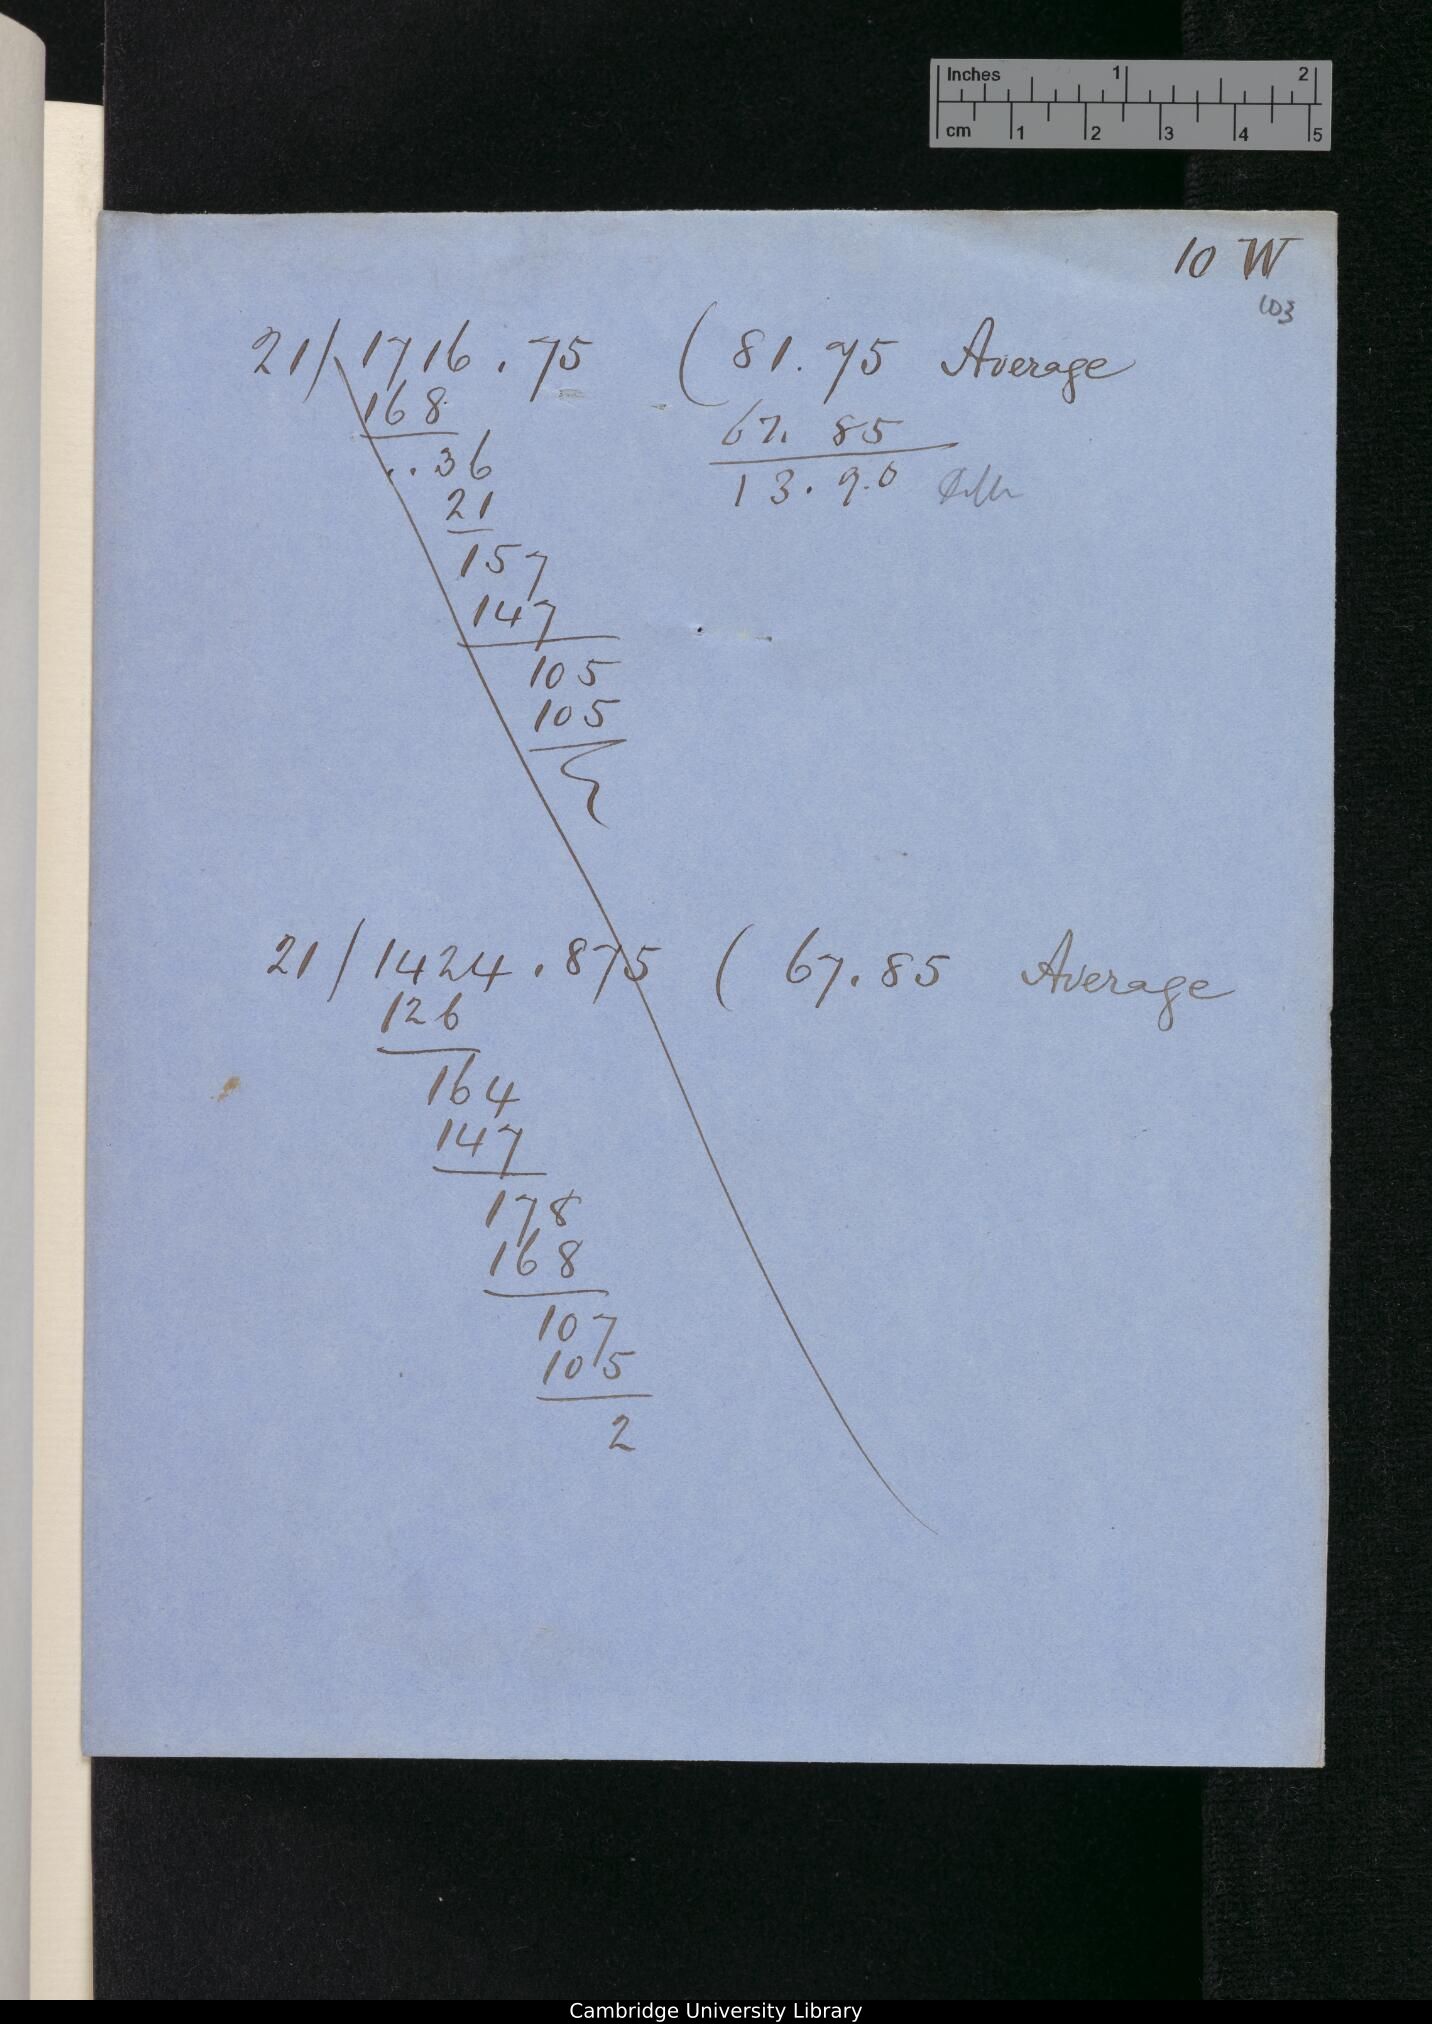 Inches 1 2
cm 1 2 3 4 5
10 W
103
21/ 1716.75 ( 81.75 Average
168 67.85
..36 13.90 Diff
21
157
147
105
105
21/ 1424.875 ( 67.85 Average
126
164
147
178
168
107
105
2
Cambridge University Library